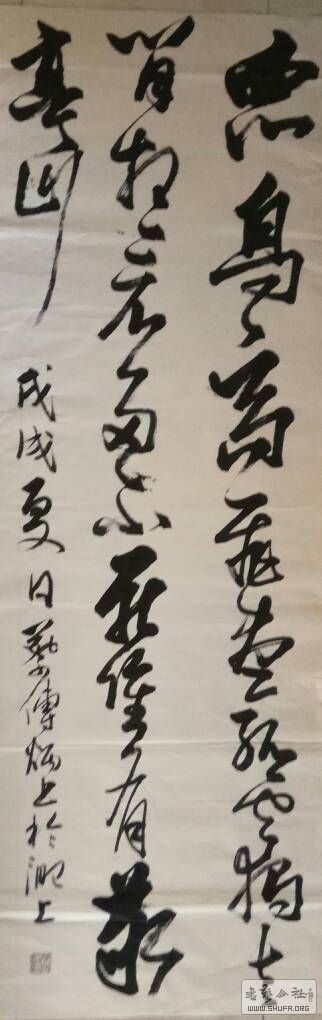 衆鳥高飛盡孤雲獨去
閒相看兩不厭有敬
亭山
戊戌夏日書於上
書藝公社
WWW.SHUFA.ORG